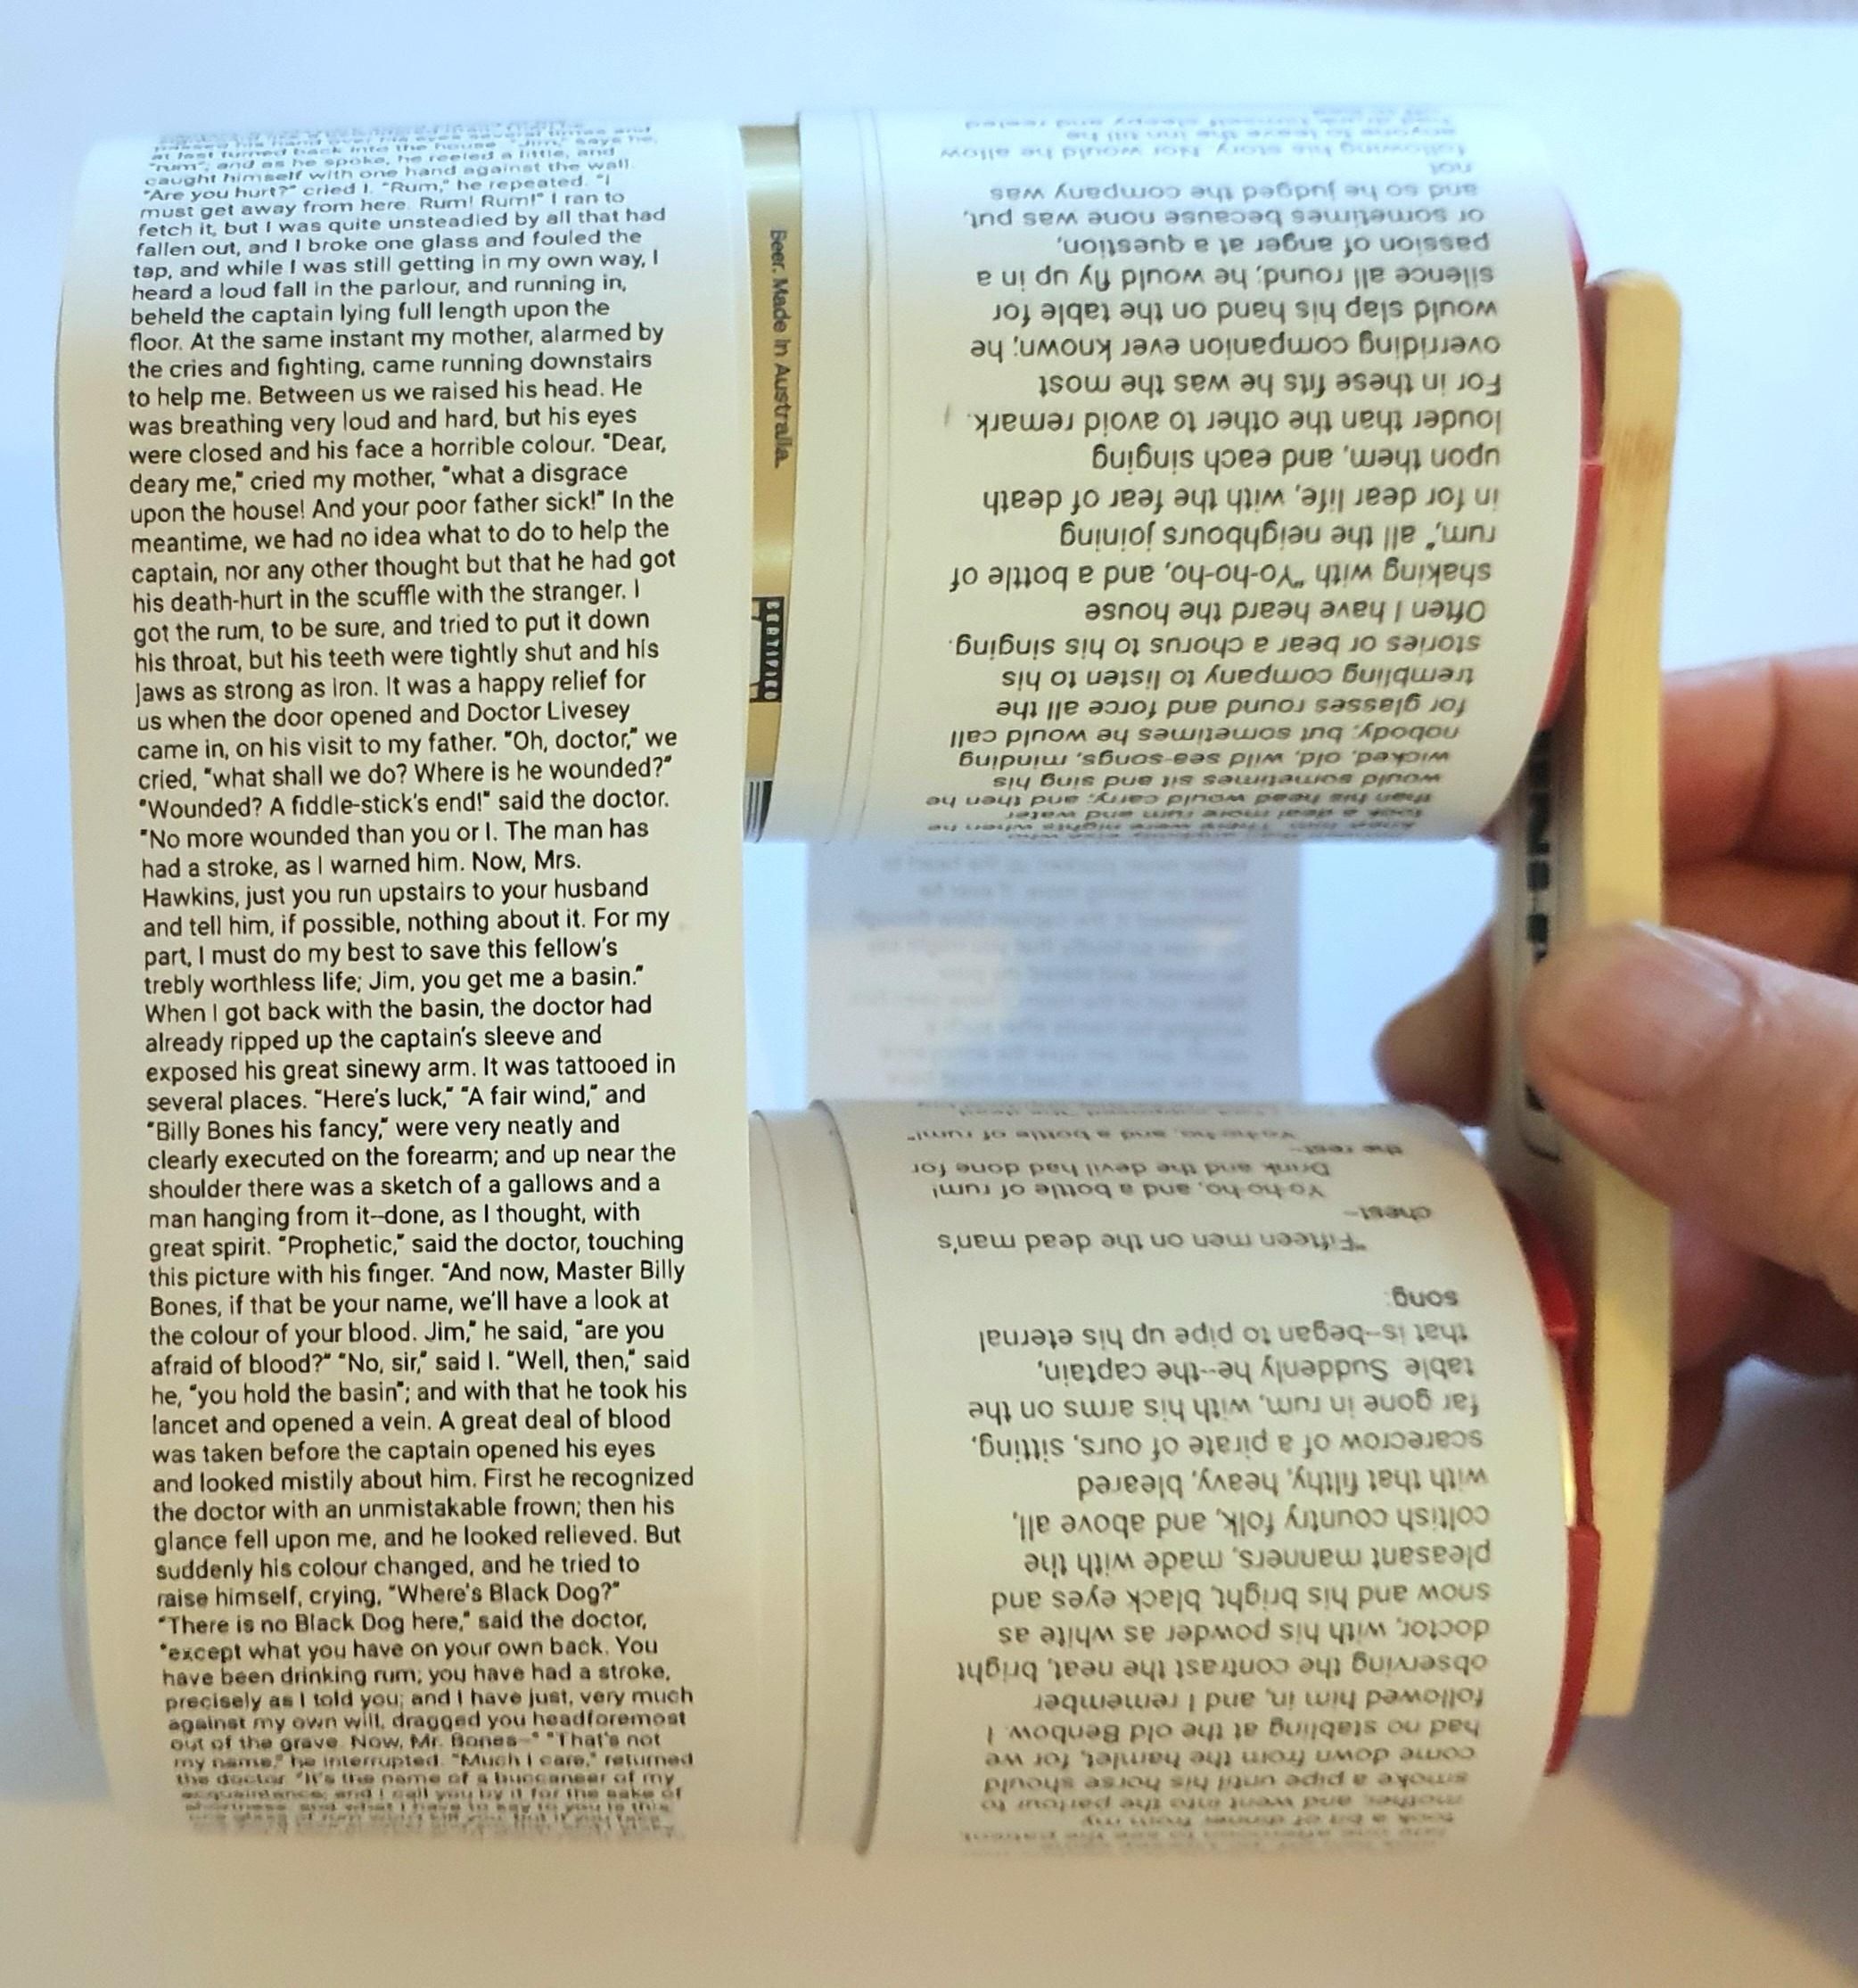 passed his hand over his eyes several times and
at last turned back into the house. "Jim," says he,
"rum"; and as he spoke, he reeled a little, and
caught himself with one hand against the wall.
"Are you hurt?" cried I. "Rum," he repeated. "I
must get away from here. Rum! Rum!" I ran to
fetch it, but I was quite unsteadied by all that had
fallen out, and I broke one glass and fouled the
tap, and while I was still getting in my own way, I
heard a loud fall in the parlour, and running in,
beheld the captain lying full length upon the
floor. At the same instant my mother, alarmed by
the cries and fighting, came running downstairs
to help me. Between us we raised his head. He
was breathing very loud and hard, but his eyes
were closed and his face a horrible colour. "Dear,
deary me," cried my mother, "what a disgrace
upon the house! And your poor father sick!" In the
meantime, we had no idea what to do to help the
captain, nor any other thought but that he had got
his death-hurt in the scuffle with the stranger. I
got the rum, to be sure, and tried to put it down
his throat, but his teeth were tightly shut and his
jaws as strong as iron. It was a happy relief for
us when the door opened and Doctor Livesey
came in, on his visit to my father. "Oh, doctor," we
cried, "what shall we do? Where is he wounded?"
"Wounded? A fiddle-stick's end!" said the doctor.
"No more wounded than you or I. The man has
had a stroke, as I warned him. Now, Mrs.
Hawkins, just you run upstairs to your husband
and tell him, if possible, nothing about it. For my
part, I must do my best to save this fellow's
trebly worthless life; Jim, you get me a basin."
When I got back with the basin, the doctor had
already ripped up the captain's sleeve and
exposed his great sinewy arm. It was tattooed in
several places. "Here's luck," "A fair wind," and
"Billy Bones his fancy," were very neatly and
clearly executed on the forearm; and up near the
shoulder there was a sketch of a gallows and a
man hanging from it--done, as I thought, with
great spirit. "Prophetic," said the doctor, touching
this picture with his finger. "And now, Master Billy
Bones, if that be your name, we'll have a look at
the colour of your blood. Jim," he said, "are you
afraid of blood?" "No, sir," said I. "Well, then," said
he, "you hold the basin"; and with that he took his
lancet and opened a vein. A great deal of blood
was taken before the captain opened his eyes
and looked mistily about him. First he recognized
the doctor with an unmistakable frown; then his
glance fell upon me, and he looked relieved. But
suddenly his colour changed, and he tried to
raise himself, crying, "Where's Black Dog?"
"There is no Black Dog here," said the doctor,
"except what you have on your own back. You
have been drinking rum; you have had a stroke,
precisely as I told you; and I have just, very much
against my own will, dragged you headforemost
out of the grave. Now, Mr. Bones--" "That's not
my name," he interrupted. "Much I care," returned
the doctor. "It's the name of a buccaneer of my
acquaintance; and I call you by it for the sake of
shortness, and what I have to say to you is this;
Beer. Made in Australia.
CERTIFIED
took a deal more rum and water
than his head would carry; and then he
would sometimes sit and sing his
wicked, old, wild sea-songs, minding
nobody; but sometimes he would call
for glasses round and force all the
trembling company to listen to his
stories or bear a chorus to his singing.
Often I have heard the house
shaking with "Yo-ho-ho, and a bottle of
rum," all the neighbours joining
in for dear life, with the fear of death
upon them, and each singing
louder than the other to avoid remark.
For in these fits he was the most
overriding companion ever known; he
would slap his hand on the table for
silence all round; he would fly up in a
passion of anger at a question,
or sometimes because none was put,
and so he judged the company was
not
following his story. Nor would he allow
anyone to leave the inn till he
had drunk himself sleepy and reeled
took a bit of dinner from my
mother, and went into the parlour to
smoke a pipe until his horse should
come down from the hamlet, for we
had no stabling at the old Benbow. I
followed him in, and I remember
observing the contrast the neat, bright
doctor, with his powder as white as
snow and his bright, black eyes and
pleasant manners, made with the
coltish country folk, and above all,
with that filthy, heavy, bleared
scarecrow of a pirate of ours, sitting,
far gone in rum, with his arms on the
table. Suddenly he--the captain,
that is--began to pipe up his eternal
song:
"Fifteen men on the dead man's
chest--
Yo-ho-ho, and a bottle of rum!
Drink and the devil had done for
the rest--
Yo-ho-ho, and a bottle of rum!"